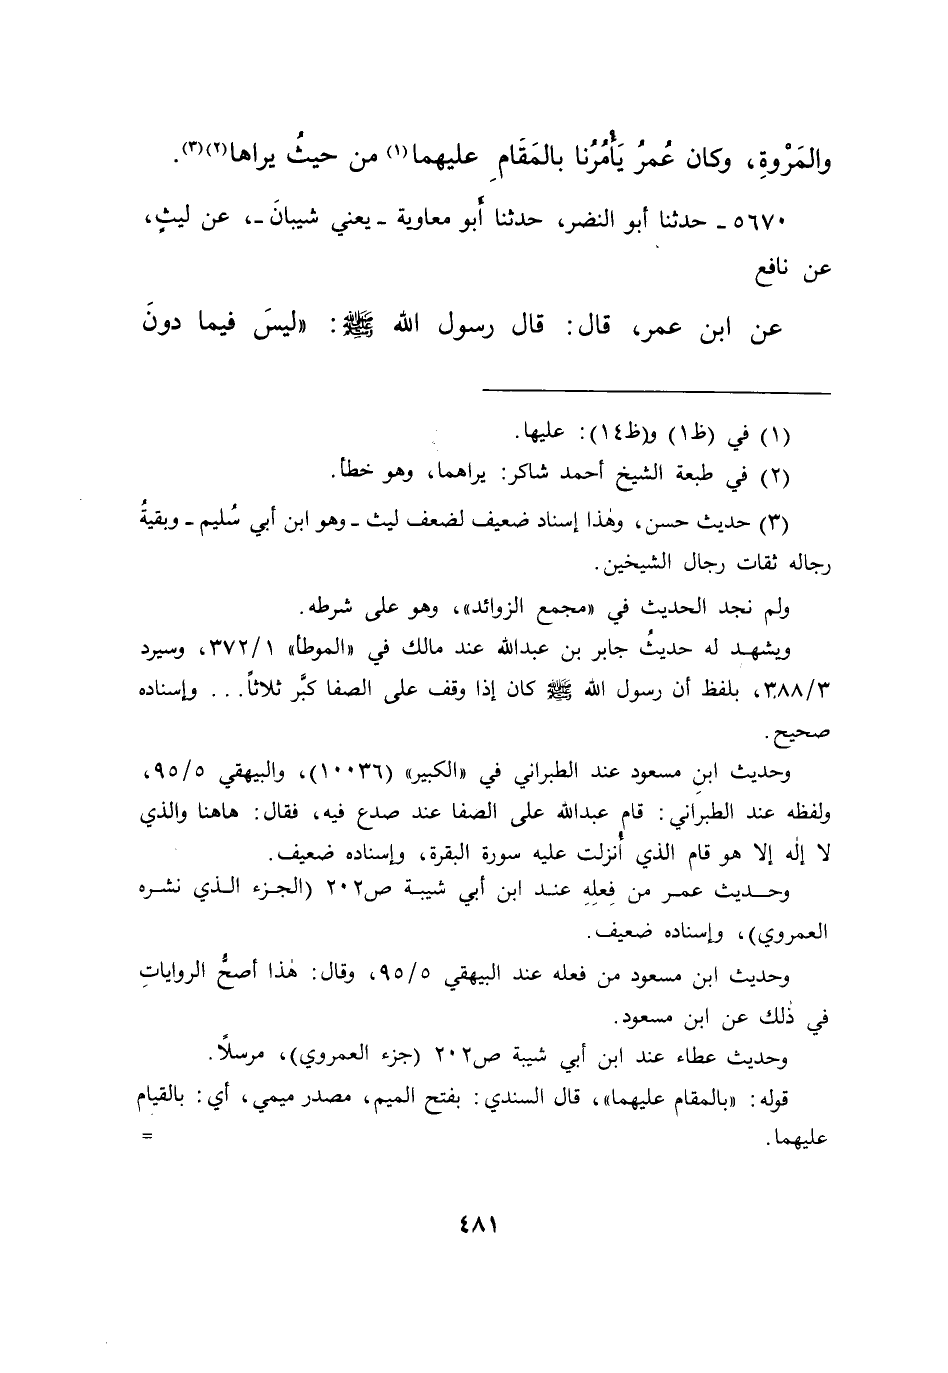 والمَرْوةِ، وكان عُمرُ يَأْمُرُنا بالمَقَامِ عليهما(١) من حيثُ يراها(٢)(٣).
٥٦٧٠ ـ حدثنا أبو النضر، حدثنا أبو معاوية ـ يعني شيبانَ ـ، عن ليثٍ،
عن نافع
عن ابن عمر، قال: قال رسول الله ﷺ: «ليسَ فيما دونَ
(١) في (ظ١) و(ظ١٤): عليها.
(٢) في طبعة الشيخ أحمد شاكر: يراهما، وهو خطأ.
(٣) حديث حسن، وهٰذا إسناد ضعيف لضعف ليث ـ وهو ابن أبي سُليم ـ وبقيةُ
رجاله ثقات رجال الشيخين.
ولم نجد الحديث في «مجمع الزوائد»، وهو على شرطه.
ويشهد له حديثُ جابر بن عبدالله عند مالك في «الموطأ» ٣٧٢/١، وسيرد
٣٨٨/٣، بلفظ أن رسول الله ﷺ كان إذا وقف على الصفا كبَّر ثلاثاً... وإسناده
صحيح.
وحديث ابنِ مسعود عند الطبراني في «الكبير» (١٠٠٣٦)، والبيهقي ٩٥/٥،
ولفظه عند الطبراني: قام عبدالله على الصفا عند صدع فيه، فقال: هاهنا والذي
لا إلٰه إلا هو قام الذي أُنزلت عليه سورة البقرة، وإسناده ضعيف.
وحديث عمر من فِعلِهِ عند ابن أبي شيبة ص٢٠٢ (الجزء الذي نشره
العمروي)، وإسناده ضعيف.
وحديث ابن مسعود من فعله عند البيهقي ٩٥/٥، وقال: هٰذا أصحُّ الرواياتِ
في ذٰلك عن ابن مسعود.
وحديث عطاء عند ابن أبي شيبة ص٢٠٢ (جزء العمروي)، مرسلاً.
قوله: «بالمقام عليهما»، قال السندي: بفتح الميم، مصدر ميمي، أي: بالقيام
عليهما. =
٤٨١